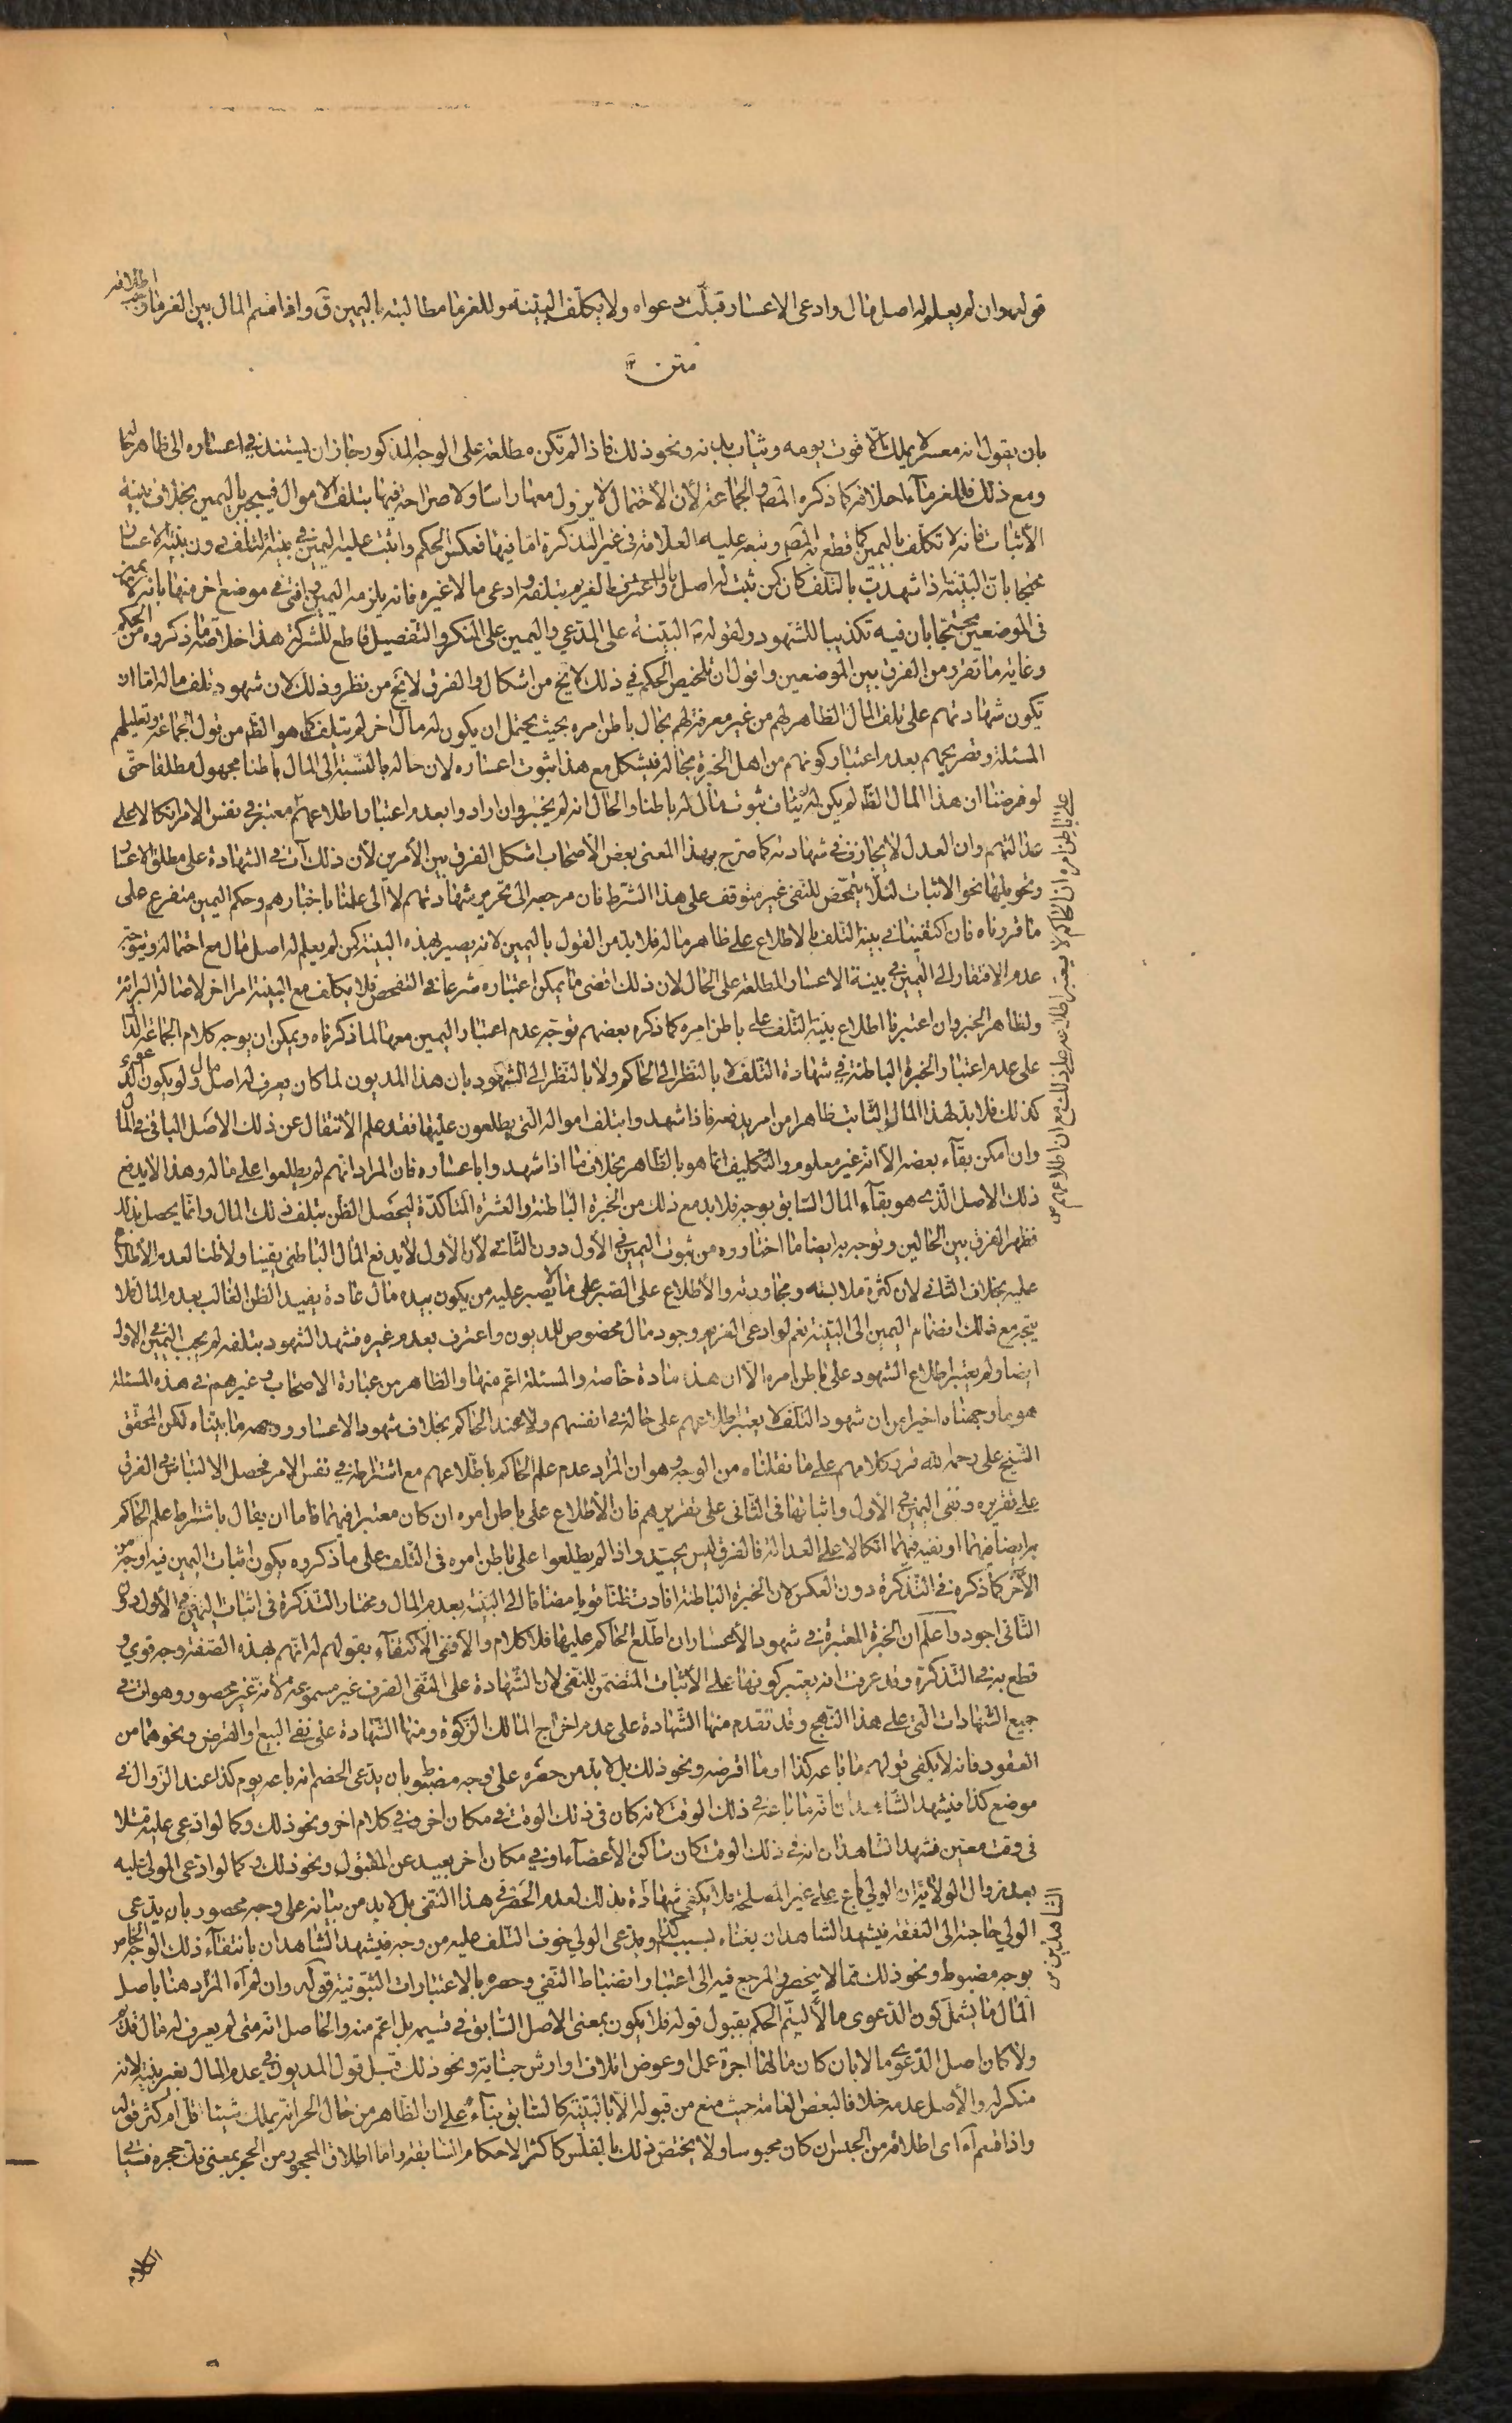 قوله وان لم يعلم له اصل مال وادعى الاعسار قبلت دعواه ولا يكلف البينة وللغرماء مطالبته باليمين ق واذا قسم المال بين الغرماء وجب اطلاقه
متن
بان يقول انه معسر لا يملك الا قوت يومه وثياب بدنه ونحو ذلك فاذا لم تكن مطلعة على الوجه المذكور جاز ان يستند في اعساره الى ظاهر حاله
ومع ذلك فللغرماء احلافه كما ذكره المصنف والجماعة لان الاحتمال لا يزول معها راسا ولا صراحة فيها بتلف الاموال فيجبر باليمين بخلاف بينة
الاثبات فانه لا تكلف باليمين كما قطع به المصنف وتبعه عليه العلامة في غير التذكرة اما فيها فعكس الحكم واثبت عليه اليمين في بينة التلف دون بينة الاعسار
محتجا بان البينة اذا شهدت بالتلف كان كمن ثبت له اصل مال واعترف الغريم بتلفه وادعى مالا غيره فانه يلزمه اليمين وافتى في موضع اخر منها بانه لا يمين
في الموضعين محتجا بان فيه تكذيبا للشهود ولقوله البينة على المدعي واليمين على المنكر والتفصيل قاطع للشركة هذا خلاصة ما ذكروه من الحكم
وغاية ما تقرر من الفرق بين الموضعين واقول ان تلخيص الحكم في ذلك لا يخ من اشكال والفرق لا يخ من نظر وذلك لان شهود تلف ماله اما ان
تكون شهادتهم على تلف المال الظاهر لهم من غير معرفة لهم بحال باطن امره بحيث يحتمل ان يكون له مال اخر لم يتلف كما هو الظ من قول الجماعة وتعليلهم
المسئلة وتصريحهم بعدم اعتبار كونهم من اهل الخبرة بحاله فيشكل مع هذا ثبوت اعساره لان حاله بالنسبة الى المال باطنا مجهول مطلقا حتى
لو فرضنا ان هذا المال الظ لم يكن له لم يناف ثبوت مال له باطنا والحال انه لم يختبر وان ارادوا بعدم اعتبار اطلاعهم معتبر في نفس الامر اتكالا على
على باطن امره ان الحاكم لا يعتبر اطلاعه على ذلك مع ان اطلاعهم
عدالتهم وان العدل لا يجازف في شهادته كما صرح بهذا المعنى بعض الاصحاب اشكل الفرق بين الامرين لان ذلك آت في الشهادة على مطلق الاعسار
وتحويلها نحو الاثبات لئلا يتمحض للنفي غير متوقف على هذا الشرط فان مرجعه الى تحرير شهادتهم لا الى علمنا باختبارهم وحكم اليمين متفرع على
ما قررناه فان اكتفينا في بينة التلف بالاطلاع على ظاهر ماله فلا بد من القول باليمين لانه يصير بهذه البينة كمن لم يعلم له اصل مال مع احتماله ويتوجه
عدم الافتقار الى اليمين في بينة الاعسار المطلعة على الحال لان ذلك اقصى ما يمكن اعتباره شرعا في التفحص فلا يكلف مع البينة امرا اخر لاصالة البرائة
ولظاهر الخبر وان اعتبرنا اطلاع بينة التلف على باطن امره كما ذكره بعضهم توجه عدم اعتبار اليمين معها لما ذكرناه ويمكن ان يوجه كلام الجماعة الدال
على عدم اعتبار الخبرة الباطنة في شهادة التلف لا بالنظر الى الحاكم ولا بالنظر الى الشهود بان هذا المديون لما كان يعرف له اصل مال ولو بكون الدعوى
كذلك فلا بد لهذا المال الثابت ظاهرا من امر يدفعه فاذا شهدوا بتلف امواله التي يطلعون عليها فقد علم الانتقال عن ذلك الاصل الباقي في المال
وان امكن بقاء بعضه الا انه غير معلوم والتكليف انما هو بالظاهر بخلاف ما اذا شهدوا باعساره فان المراد انهم لم يطلعوا على ماله وهذا لا يدفع
ذلك الاصل الذي هو بقاء المال السابق بوجه فلا بد مع ذلك من الخبرة الباطنة والعشرة المتاكدة ليحصل الظن بتلف ذلك المال وانما يحصل بذلك
فظهر الفرق بين الحالين وتوجه به ايضا ما اختاروه من ثبوت اليمين في الاول دون الثاني لان الاول لا يدفع المال الباطني يقينا ولا ظنا لعدم الاطلاع
عليه بخلاف الثاني لان كثرة ملابسته ومجاورته والاطلاع على الصبر على ما لا يصبر عليه من يكون بيده مال عادة يفيد الظن الغالب بعدم المال فلا
يتجه مع ذلك انضمام اليمين الى البينة نعم لو ادعى الغريم وجود مال مخصوص للمديون واعترف بعدم غيره فشهد الشهود بتلفه لم يجب اليمين في الاول
ايضا ولم يعتبر اطلاع الشهود على باطن امره الا ان هذا مادة خاصة والمسئلة اعم منها والظاهر من عبارة الاصحاب وغيرهم في هذه المسئلة
هو ما وجهناه اخيرا من ان شهود التلف لا يعتبر اطلاعهم على حاله في انفسهم ولا عند الحاكم بخلاف شهود الاعسار ووجهه ما بيناه لكن المحقق
الشيخ على رحمه الله نزل كلامهم على ما نقلناه من الوجه وهو ان المراد عدم علم الحاكم باطلاعهم مع اشتراطه في نفس الامر فحصل الالتباس في الفرق
على تقريره ونفى اليمين في الاول واثباتها في الثاني على تقريرهم فان الاطلاع على باطن امره ان كان معتبرا فيهما فاما ان يقال باشتراط علم الحاكم
به ايضا فيهما او نفيه فيهما اتكالا على العدالة فالفرق ليس بجيد واذا لم يطلعوا على باطن امره في التلف على ما ذكروه يكون اثبات اليمين فيه اوجه من
الاخر كما ذكره في التذكرة دون العكس لان الخبرة الباطنة افادت ظنا قويا مضافا الى البينة بعدم المال ومختار التذكرة في اثبات اليمين في الاول دون
الثاني اجود واعلم ان الخبرة المعتبرة في شهود الاعسار ان اطلع الحاكم عليها فلا كلام والا ففي الاكتفاء بقولهم له انهم بهذه الصفة وجه قوي و
قطع به في التذكرة وقد عرفت انه يعتبر كونها على الاثبات المتضمن للنفي لان الشهادة على النفي الصرف غير مسموعة لانه غير محصور وهو آت في
جميع الشهادات التي على هذا النهج وقد تقدم منها الشهادة على عدم اخراج المالك الزكوة ومنها الشهادة على نفي البيع او القرض ونحوهما من
العقود فانه لا يكفى قولهم ما باعه كذا او ما اقرضه ونحو ذلك بل لا بد من حصره على وجه مضبوط بان يدعى الخصم انه باعه يوم كذا عند الزوال في
موضع كذا فيشهد الشاهدان انه ما باعه في ذلك الوقت لانه كان في ذلك الوقت في مكان اخر او في كلام اخر ونحو ذلك وكما لو ادعى عليه قتلا
في وقت معين فشهد الشاهدان انه في ذلك الوقت كان ساكن الاعضاء او في مكان اخر بعيد عن المقتول ونحو ذلك وكما لو ادعى المولى عليه
بعد زوال الولاية ان الولي باع على غير المصلحة فلا يكفى شهادة بذلك لعدم الحصر في هذا النفي بل لا بد من بيانه على وجه محصور بان يدعى
الشاهدين
الولي حاجته الى النفقة فيشهد الشاهدان بغناه بسبب كذا ويدعى الولي خوف التلف عليه من وجه فيشهد الشاهدان بانتفاء ذلك الوجه الخاص
بوجه مضبوط ونحو ذلك مما لا ينحصر والمرجع فيه الى اعتبار انضباط النفي وحصره بالاعتبارات الثبوتية قوله وان لم آه المراد هنا باصل
المال ما يشمل كون الدعوى مالا ليتم الحكم بقبول قوله فلا يكون بمعنى الاصل السابق في قسيمه بل اعم منه والحاصل انه متى لم يعرف له مال قبل
ولا كان اصل الدعوى مالا بان كان مالها اجرة عمل او عوض اتلاف او ارش جناية ونحو ذلك قبل قول المديون في عدم المال بغير بينة لانه
منكر له والاصل عدمه خلافا لبعض العامة حيث منع من قبوله الا بالبينة كالسابق بناء على ان الظاهر من حال الحر انه يملك شيئا قل ام كثر قوله
واذا قسم آه اى اطلاقه من الحبس ان كان محبوسا ولا يختص ذلك بالمفلس كاكثر الاحكام السابقة واما اطلاق المحجور من الحجر بمعنى فك حجره فسياتي
الكلام